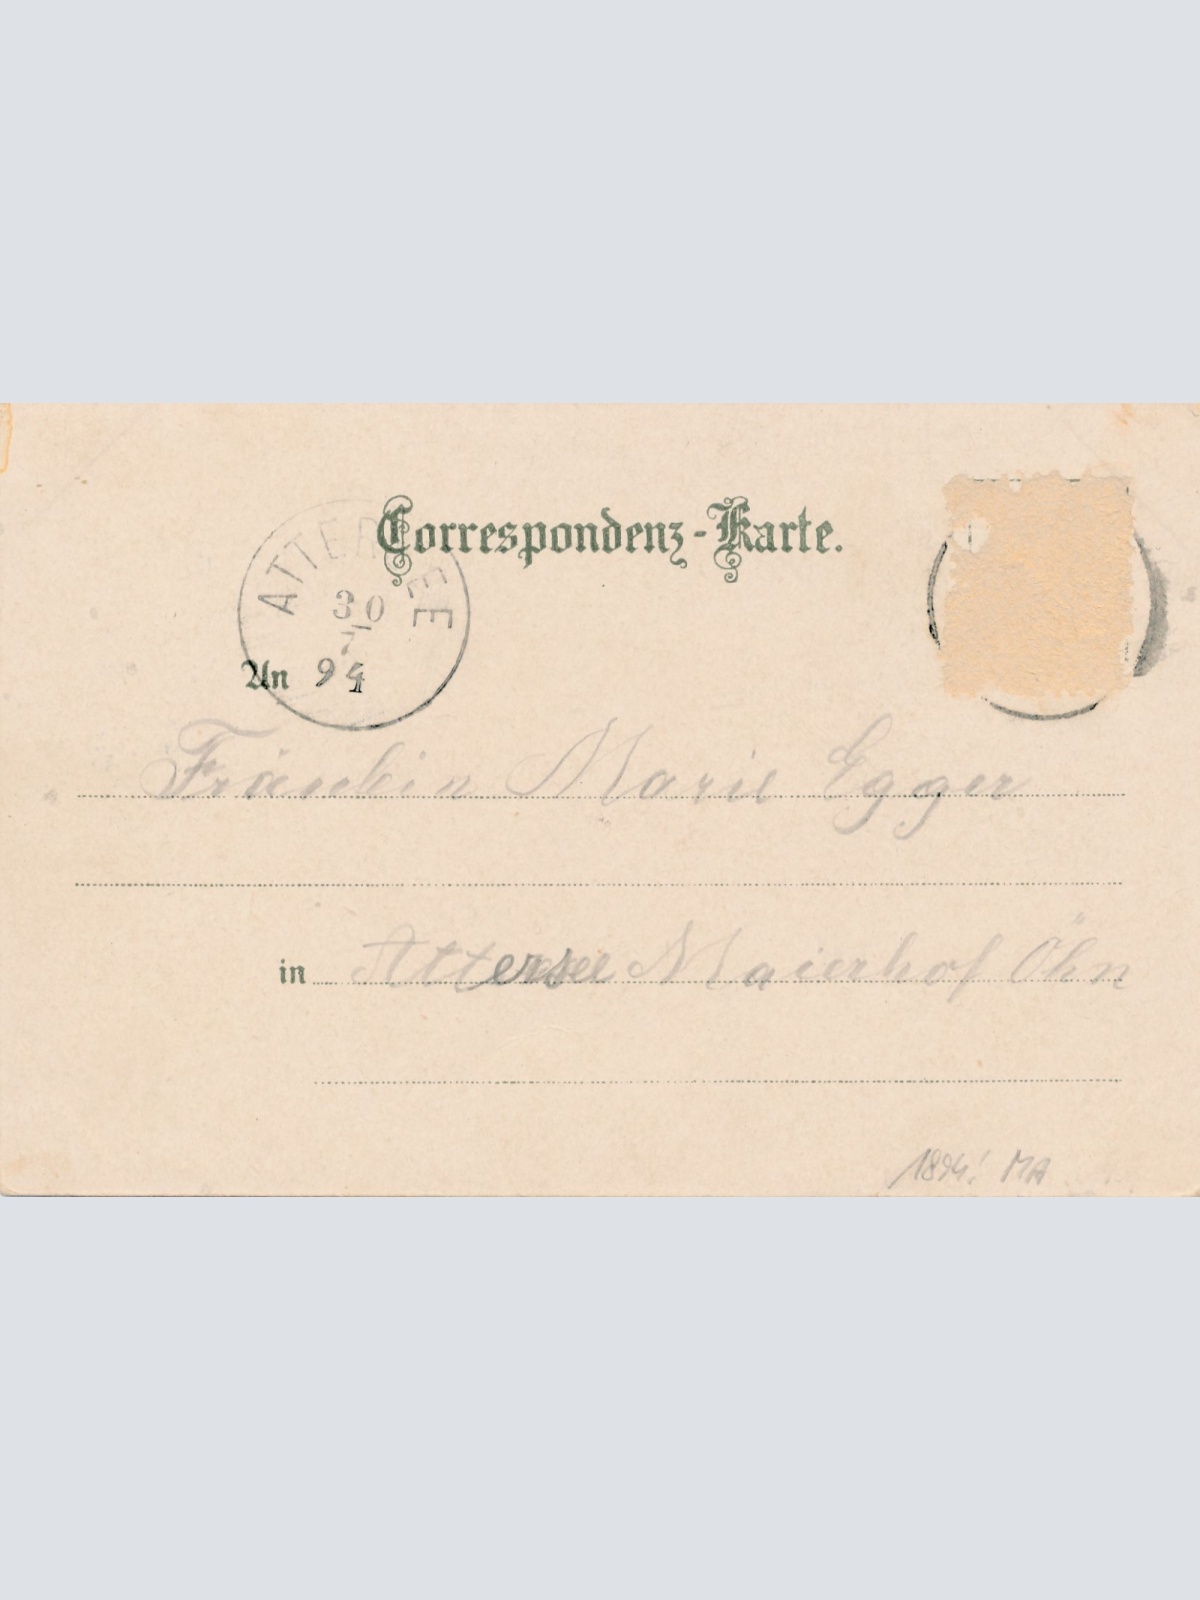 Correspondenz-Karte.
ATTERSEE
30
7
94
An
Fräulein Marie Egger
in Attersee Maierhof Öhn
1894! MA